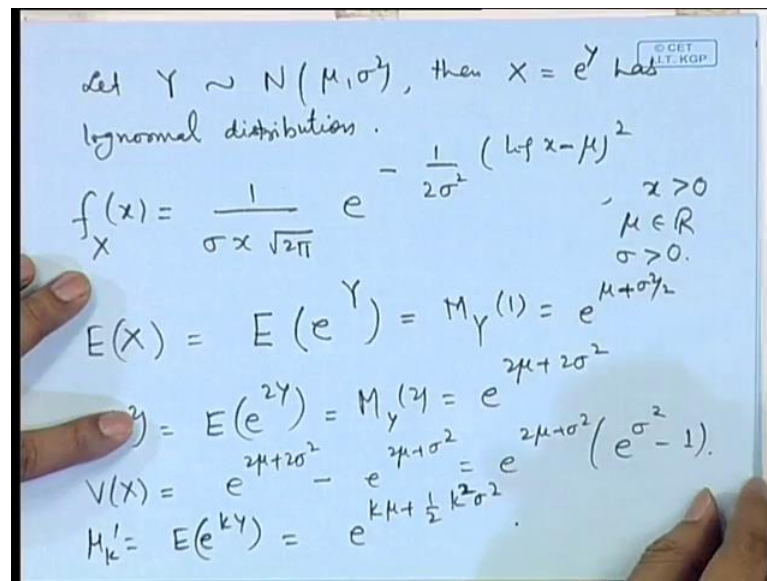 © CET
I.I.T. KGP
Let Y ~ N(μ, σ²), then X = e^Y has
lognormal distribution.
f_X(x) = 1/(σ x √2π) e^{- 1/(2σ²) (log x - μ)²}, x > 0
μ ∈ ℝ
σ > 0.
E(X) = E(e^Y) = M_Y(1) = e^{μ+σ²/2}
²) = E(e^{2Y}) = M_Y(2) = e^{2μ+2σ²}
V(X) = e^{2μ+2σ²} - e^{2μ+σ²} = e^{2μ+σ²}(e^{σ²} - 1).
μ_k' = E(e^{kY}) = e^{kμ + ½ k²σ²}.